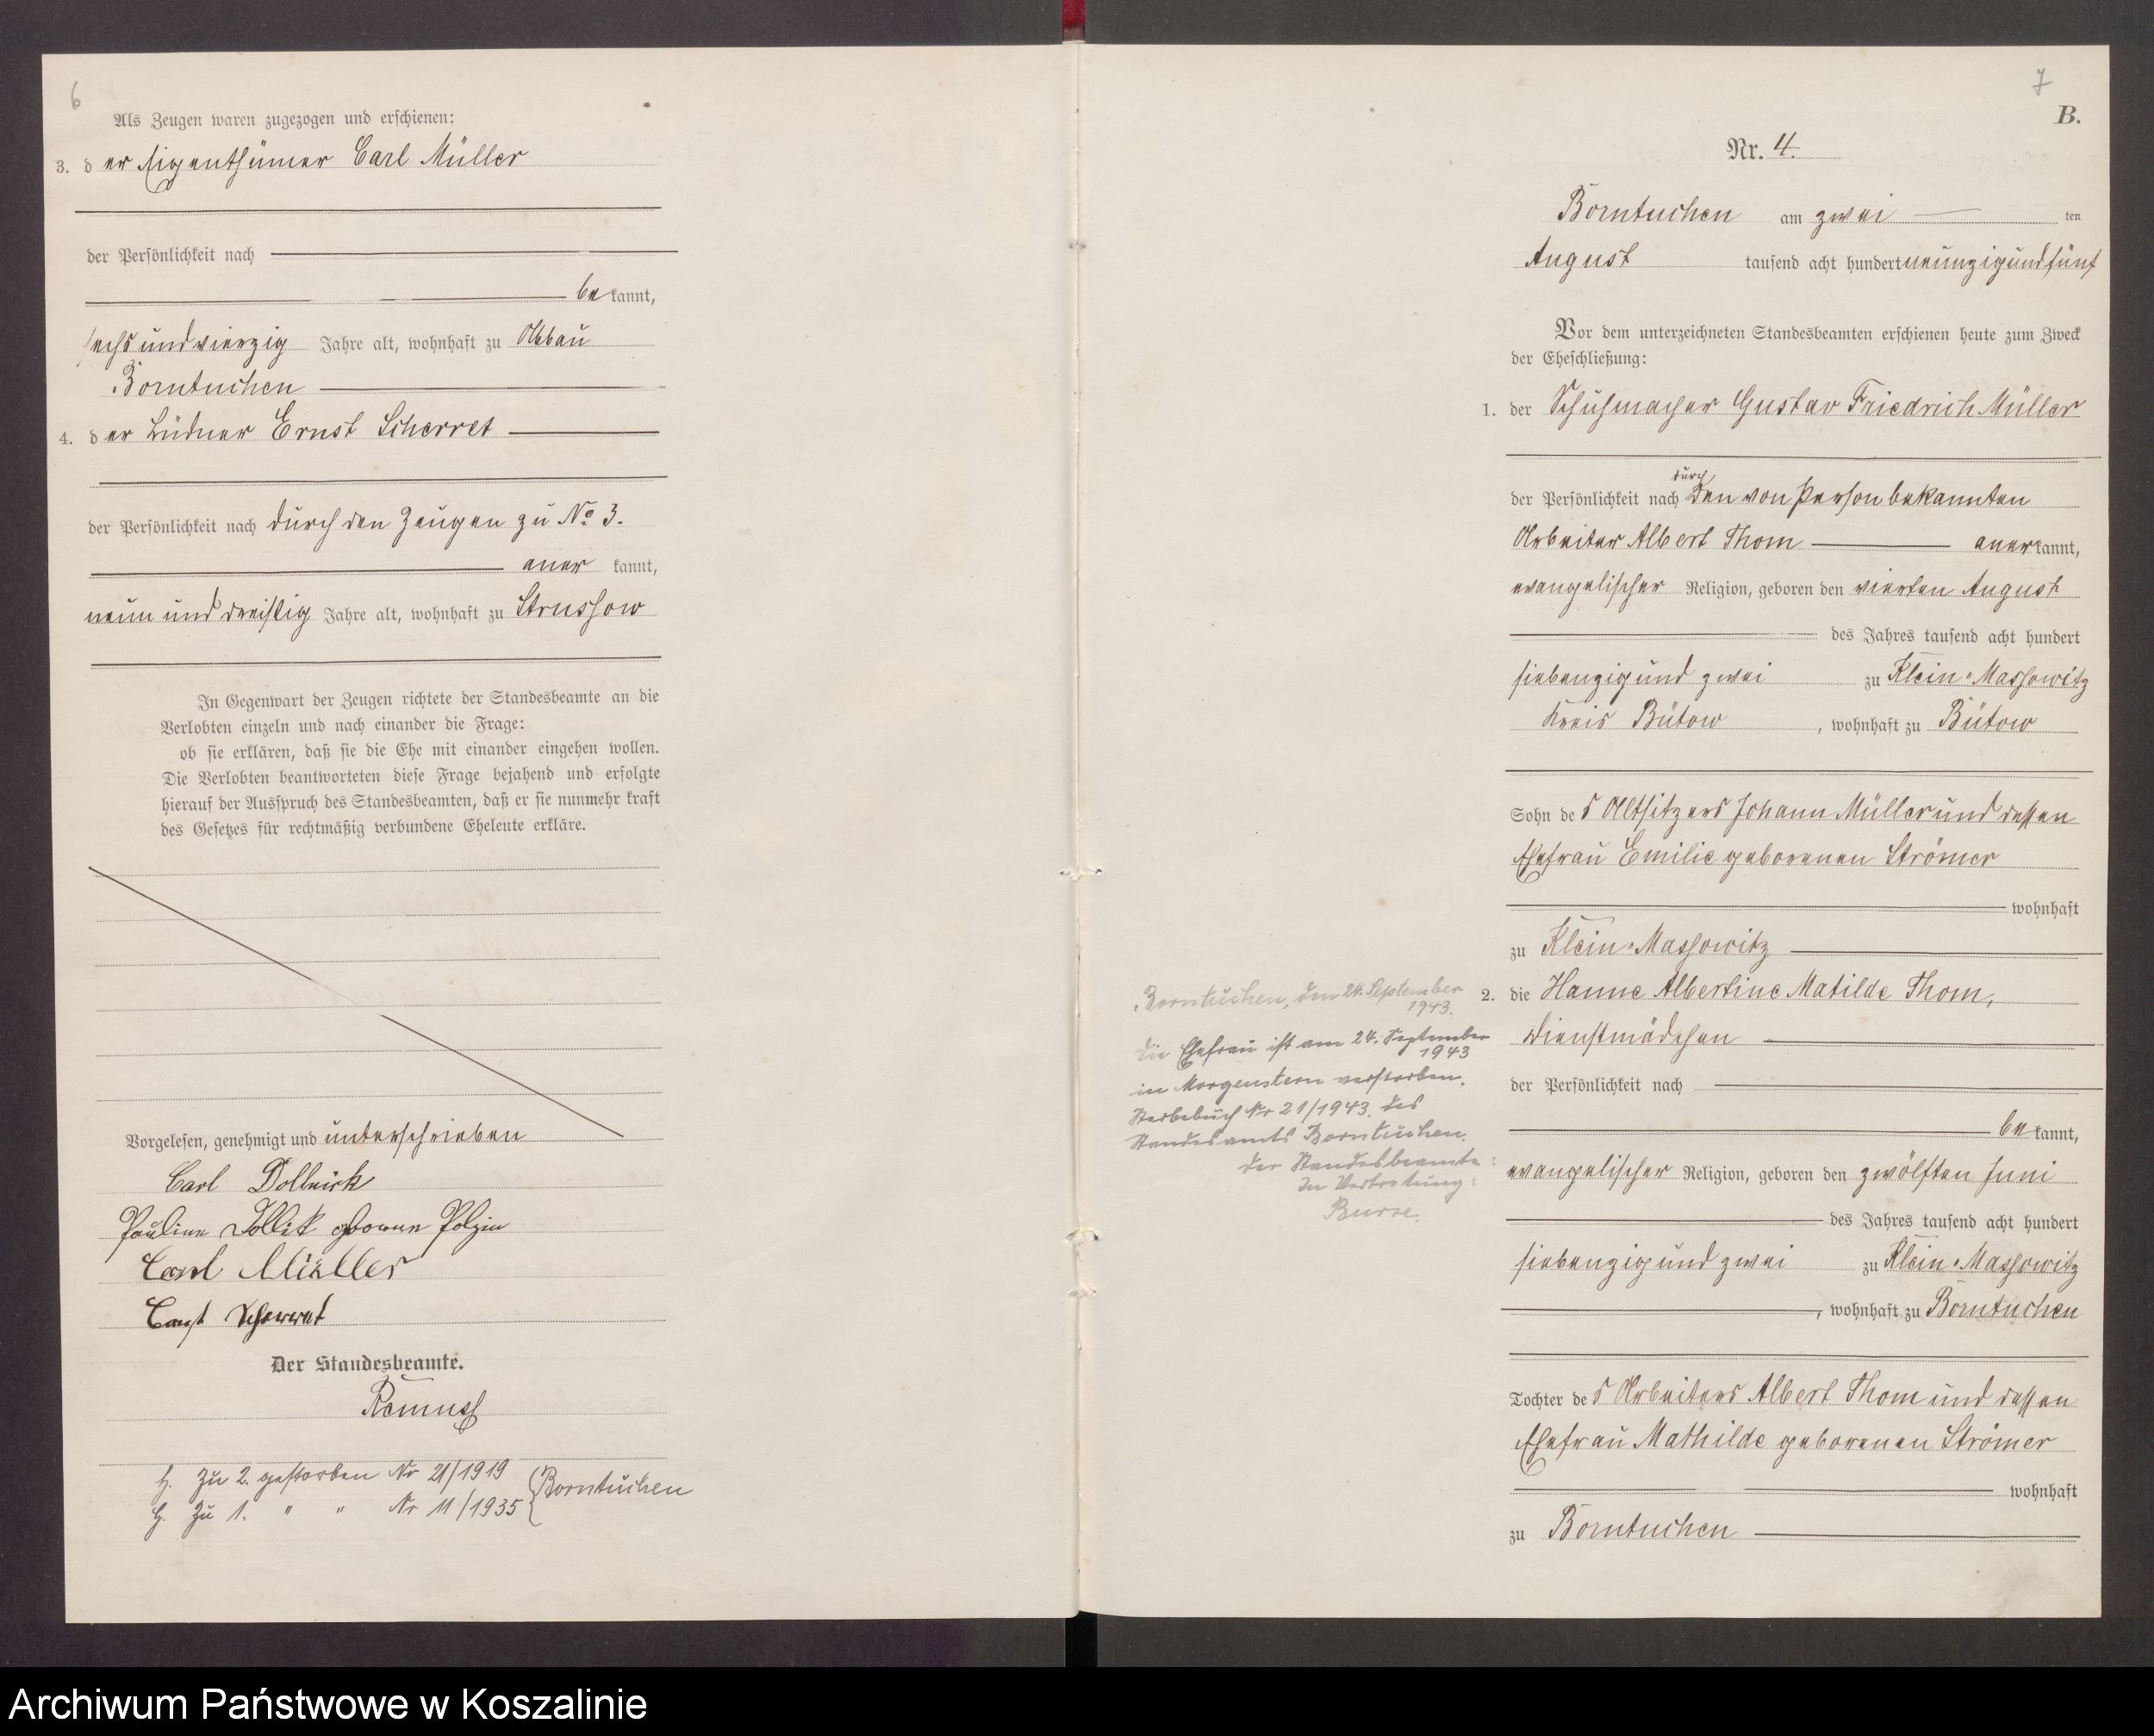 6
Als Zeugen waren zugezogen und erschienen:
3. der Eigenthümer Carl Müller
der Persönlichkeit nach
bekannt,
sechsundvierzig Jahre alt, wohnhaft zu Abbau
Borntuchen
4. der Büdner Ernst Scherret
der Persönlichkeit nach durch den Zeugen zu No 3.
anerkannt,
neun und dreißig Jahre alt, wohnhaft zu Strussow
In Gegenwart der Zeugen richtete der Standesbeamte an die
Verlobten einzeln und nach einander die Frage:
ob sie erklären, daß sie die Ehe mit einander eingehen wollen.
Die Verlobten beantworteten diese Frage bejahend und erfolgte
hierauf der Ausspruch des Standesbeamten, daß er sie nunmehr kraft
des Gesetzes für rechtmäßig verbundene Eheleute erkläre.
Vorgelesen, genehmigt und unterschrieben
Carl
Pauline geborene Polzin
Carl Müller
Ernst Scherret
Der Standesbeamte.
Remuss
H. Zu 2. gestorben Nr 21/1919
H. Zu 1. " " Nr 11/1935 } Borntuchen
7
B.
Nr. 4.
Borntuchen am zwei ten
August tausend acht hundert neunzigundfünf
Vor dem unterzeichneten Standesbeamten erschienen heute zum Zweck
der Eheschließung:
1. der Schuhmacher Gustav Friedrich Müller
durch
der Persönlichkeit nach den von Person bekannten
Arbeiter Albert Thom anerkannt,
evangelischer Religion, geboren den vierten August
des Jahres tausend acht hundert
siebenzigund zwei zu Klein-Massowitz
Kreis Bütow, wohnhaft zu Bütow
Sohn des Altsitzers Johann Müller und dessen
Ehefrau Emilie geborenen Strömer
wohnhaft
zu Klein-Massowitz
2. die Hanne Albertine Matilde Thom,
Dienstmädchen
der Persönlichkeit nach
bekannt,
evangelischer Religion, geboren den zwölften Juni
des Jahres tausend acht hundert
siebenzigund zwei zu Klein-Massowitz
, wohnhaft zu Borntuchen
Tochter des Arbeiters Albert Thom und dessen
Ehefrau Mathilde geborenen Strömer
wohnhaft
zu Borntuchen
Borntuchen, den 24. September
1943.
Die Ehefrau ist am 24. September
1943
in Morgenstern verstorben.
Sterbebuch Nr 21/1943. des
Standesamts Borntuchen.
Der Standesbeamte:
In Vertretung:
Burse.
Archiwum Państwowe w Koszalinie